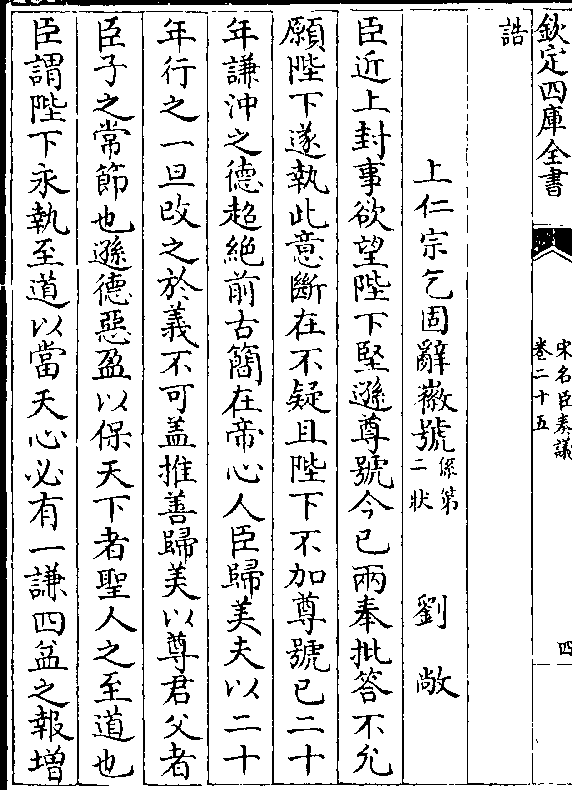 欽定四庫全書
宋名臣奏議
卷二十五
四
誥
上仁宗乞固辭徽號係第二狀 劉敞
臣近上封事欲望陛下堅遜尊號今已兩奉批答不允
願陛下遂執此意斷在不疑且陛下不加尊號已二十
年謙沖之德超絶前古簡在帝心人臣歸美夫以二十
年行之一旦改之於義不可盖推善歸美以尊君父者
臣子之常節也遜德惡盈以保天下者聖人之至道也
臣謂陛下永執至道以當天心必有一謙四益之報增